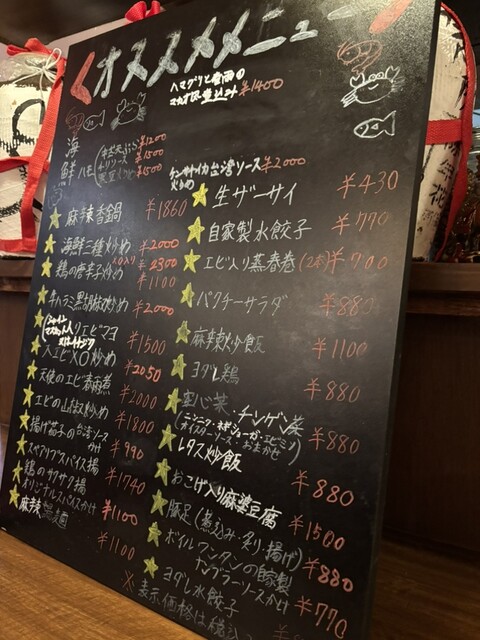 オススメメニュー
ハマグリと
マカオ風煮込み ¥1400
海鮮
ハモ
¥1200
チリソース ¥1500
¥1500
チンゲサイカ台湾ソース炒め ¥2000
麻辣香鍋 ¥1860
海鮮三種炒め ¥2000
XO入り ¥2300
鶏の唐辛子炒め ¥1100
牛ハラミ黒胡麻炒め ¥2000
入りエビマヨ ¥1500
大エビXO炒め ¥2050
天使のエビ春雨煮 ¥2000
エビの山椒炒め ¥1800
揚げ茄子の台湾ソースかけ ¥990
スペアリブスパイス揚 ¥1740
鶏のサクサク揚
オリジナルスパイスかけ ¥1100
麻辣 麺 ¥1100
生ザーサイ ¥430
自家製水餃子 ¥770
エビ入り蒸春巻(2本) ¥700
パクチーサラダ ¥880
麻辣辣炒飯 ¥1100
ヨダレ鶏 ¥880
空心菜・チンゲン菜
(ニンニク・ネギショーガ・エビミソ
オイスターソース・おまかせ) ¥880
レタス炒飯 ¥880
おこげ入り麻婆豆腐 ¥1500
豚足(煮込み・炙り・揚げ) ¥880
ボイルワンタンの自家製
ナンプラーソースかけ ¥770
ヨダレ水餃子
※表示価格は税込